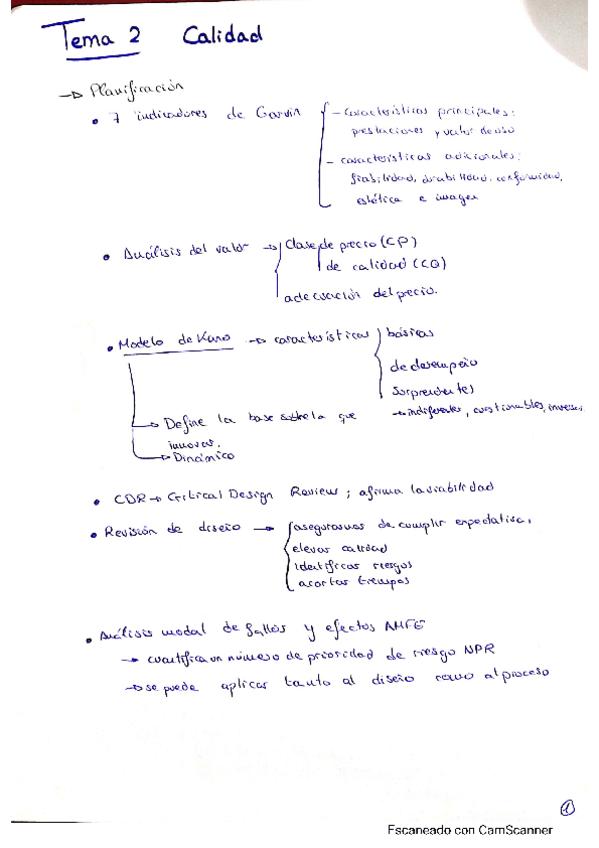 Tema 2 Calidad
→ Planificación
• 7 indicadores de Garvin { - Características principales:
prestaciones y valor de uso
- características adicionales:
fiabilidad, durabilidad, conformidad,
estética e imagen
• Análisis del valor → Clase de precio (CP)
de calidad (CQ)
adecuación del precio.
• Modelo de Kano → características } básicas
de desempeño
sorprendentes
→ indiferentes, cuestionables, inversas
→ Define la base sobre la que
innovar.
→ Dinámico
• CDR → Critical Design Review; afirma la viabilidad
• Revisión de diseño → { asegurarnos de cumplir expectativas
elevar calidad
identificar riesgos
acortar tiempos
• Análisis modal de fallos y efectos AMFE
→ cuantifica un número de prioridad de riesgo NPR
→ se puede aplicar tanto al diseño como al proceso
1
Escaneado con CamScanner